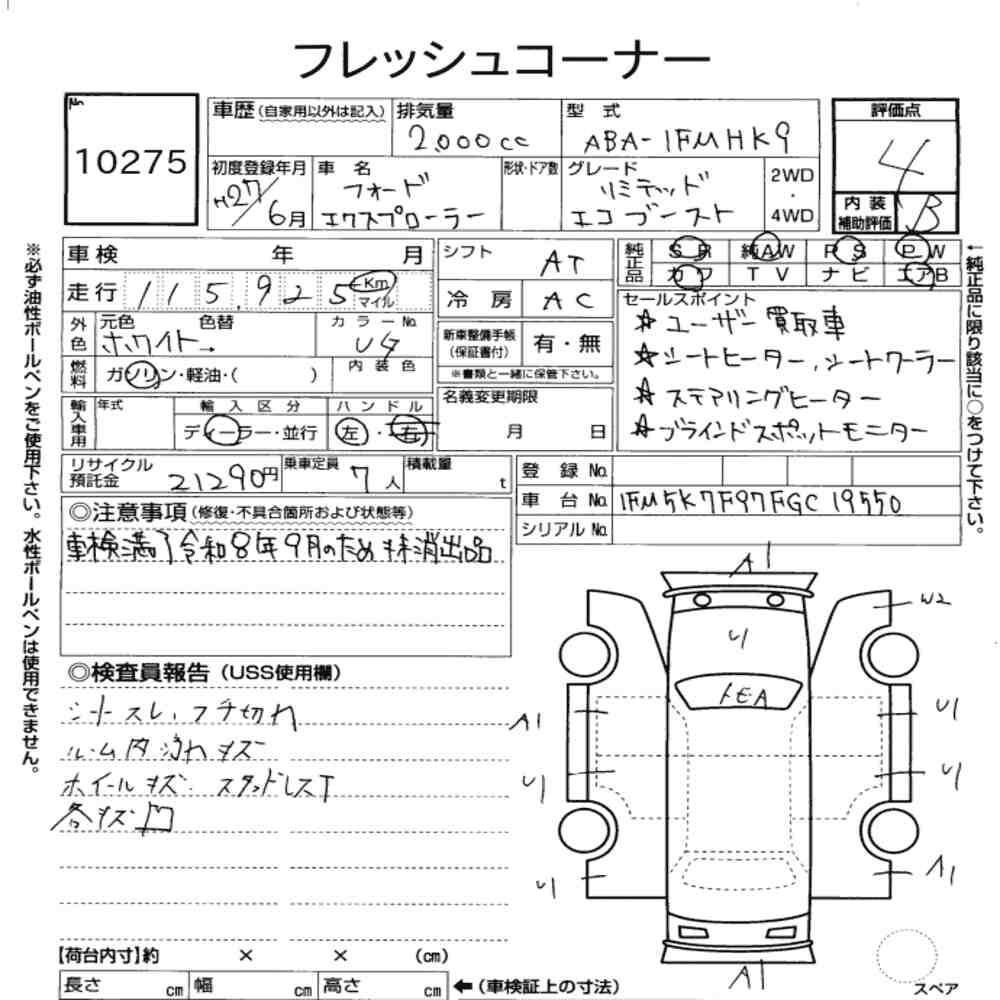 フレッシュコーナー
No. 10275
車歴 (自家用以外は記入)
排気量 2,000cc
型式 ABA-1FMHK9
評価点 4
内装補助評価 B
初度登録年月 H27/6月
車名 フォード エクスプローラー
形状・ドア数
グレード リミテッド エコブースト
2WD・4WD
車検 年 月
走行 115,925 Km マイル
シフト AT
冷房 AC
純正品 SR 純AW PS PW
カワ TV ナビ エアB
外色 元色 色替 ホワイト→
カラーNo. UG
内装色
燃料 ガソリン・軽油・( )
新車整備手帳 (保証書付) 有・無
※書類と一緒に保管下さい。
輸入車用 年式
輸入区分 ディーラー・並行
ハンドル 左・右
名義変更期限 月 日
セールスポイント
☆ユーザー買取車
☆シートヒーター、シートクーラー
☆ステアリングヒーター
☆ブラインドスポットモニター
リサイクル預託金 21290円
乗車定員 7人
積載量 t
登録No.
車台No. 1FM5K7F97FGC19550
シリアルNo.
◎注意事項 (修復・不具合箇所および状態等)
車検満了令和8年9月のため抹消出品
◎検査員報告 (USS使用欄)
シートスレ、フチ切れ
ルーム内汚れキズ
ホイールキズ スタッドレスT
各キズ凹
A1
W2
U1
トEA
A1
U1
U1
U1
U1
A1
A1
スペア
【荷台内寸】約 × × (cm)
長さ cm 幅 cm 高さ cm ←(車検証上の寸法)
※必ず油性ボールペンをご使用下さい。水性ボールペンは使用できません。
←純正品に限り該当に○をつけて下さい。